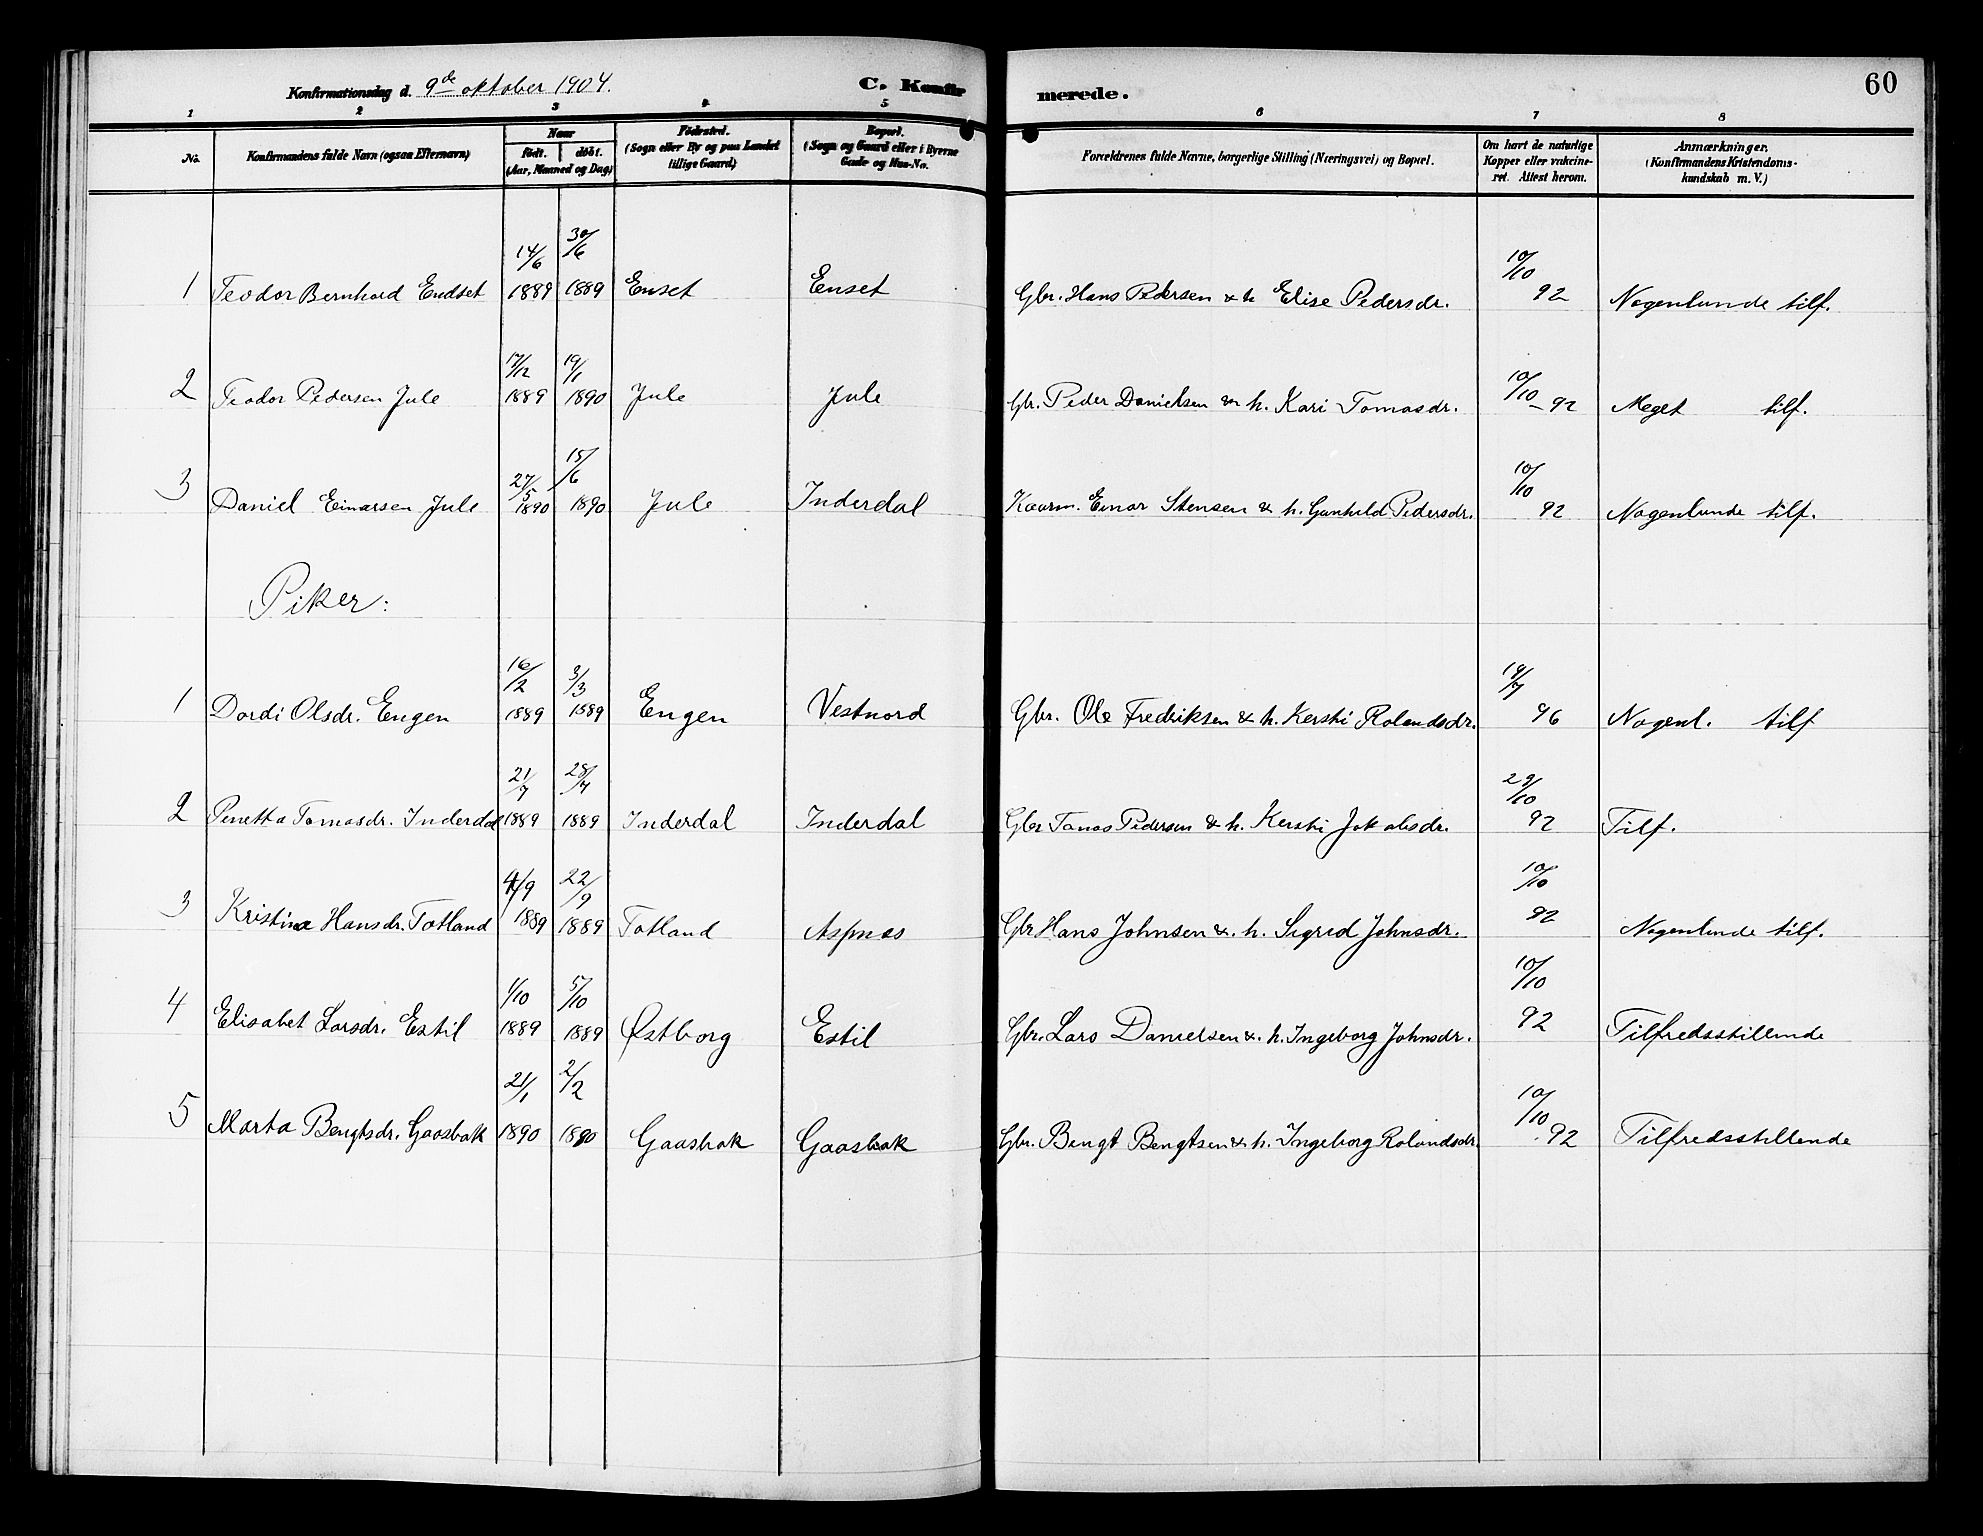 Konfirmationsdag d. 9de oktober 1904. C. Konfir merede. 60
1 2 3 4 5 6 7 8
No. Konfirmandens fulde Navn (ogsaa Efternavn) Naar født. døbt. (Aar, Maaned og Dag) Fødested. (Sogn eller By og paa Landet tillige Gaard) Bopæl. (Sogn og Gaard eller i Byerne Gade og Hus-No. Forældrenes fulde Navne, borgerlige Stilling (Næringsvei) og Bopæl. Om havt de naturlige Kopper eller vakcineret. Attest herom. Anmærkninger. (Konfirmandens Kristendomskundskab m. V.)
1 Teodor Bernhard Endset 14/6 1889 30/6 1889 Enset Enset Gbr. Hans Pedersen & h Elise Pedersdr. 10/10 92 Nogenlunde tilf.
2 Teodor Pedersen Jule 17/12 1889 19/1 1890 Jule Jule Gbr. Peder Danielsen & h. Kari Tomasdr. 10/10 – 92 Meget tilf.
3 Daniel Einarsen Jule 27/5 1890 15/6 1890 Jule Inderdal Kaarm. Einar Stensen & h. Gunhild Pedersdr. 10/10 92 Nogenlunde tilf.
Piker:
1 Dordi Olsdr. Engen 16/2 1889 3/3 1889 Engen Vestnord Gbr. Ole Fredriksen & h. Kersti Rolandsdr. 19/7 96 Nogenl. tilf
2 Penetta Tomasdr. Inderdal 21/7 1889 28/7 1889 Inderdal Inderdal Gbr Tomas Pedersen & h. Kersti Jakobsdr. 29/10 92 Tilf.
3 Kristina Hansdr. Totland 4/9 1889 22/9 1889 Totland Aspnes Gbr Hans Johnsen &. h. Sigrid Johnsdr. 10/10 92 Nogenlunde tilf.
4 Elisabet Larsdr. Estil 1/10 1889 5/10 1889 Østborg Estil Gbr. Lars Danielsen &. h. Ingeborg Johnsdr. 10/10 92 Tilfredsstillende
5 Marta Bengtsdr. Gaasbak 21/1 1890 2/2 1890 Gaasbak Gaasbak Gbr. Bengt Bengtsen & h. Ingeborg Rolandsdr. 10/10 92 Tilfredsstillende